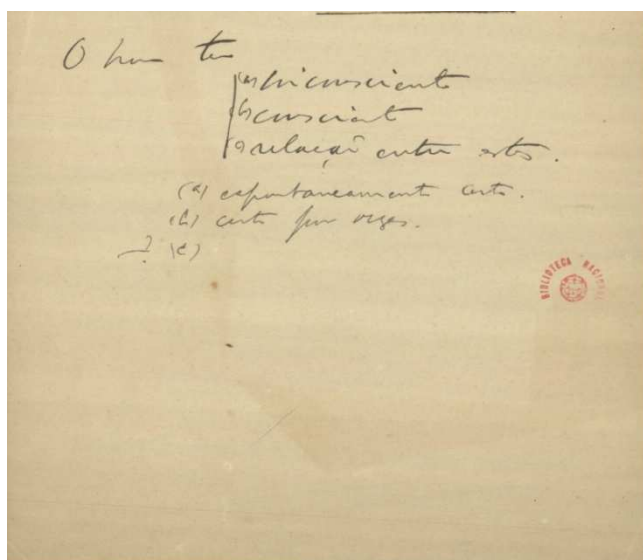 O hom tem
(a) inconsciente
(b) consciente
(c) relação entre estes.
(a) espontaneamente certo.
(b) certo por vezes.
? (c)
BIBLIOTECA NACIONAL